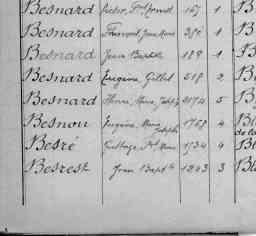 Besnard 167 1 B
Besnard François, Jean Marie 387 1 B
Besnard Jean Baptiste 189 1 B
Besnard Eugène, Gilles 518 2 B
Besnard Henri, Marie, Joseph 2174 5 B
Besnou Eugène, Marie Joseph 1758 4 Bl
de la
Besré 1734 4 Bl
Besrest Jean Baptte 1243 3 Bla